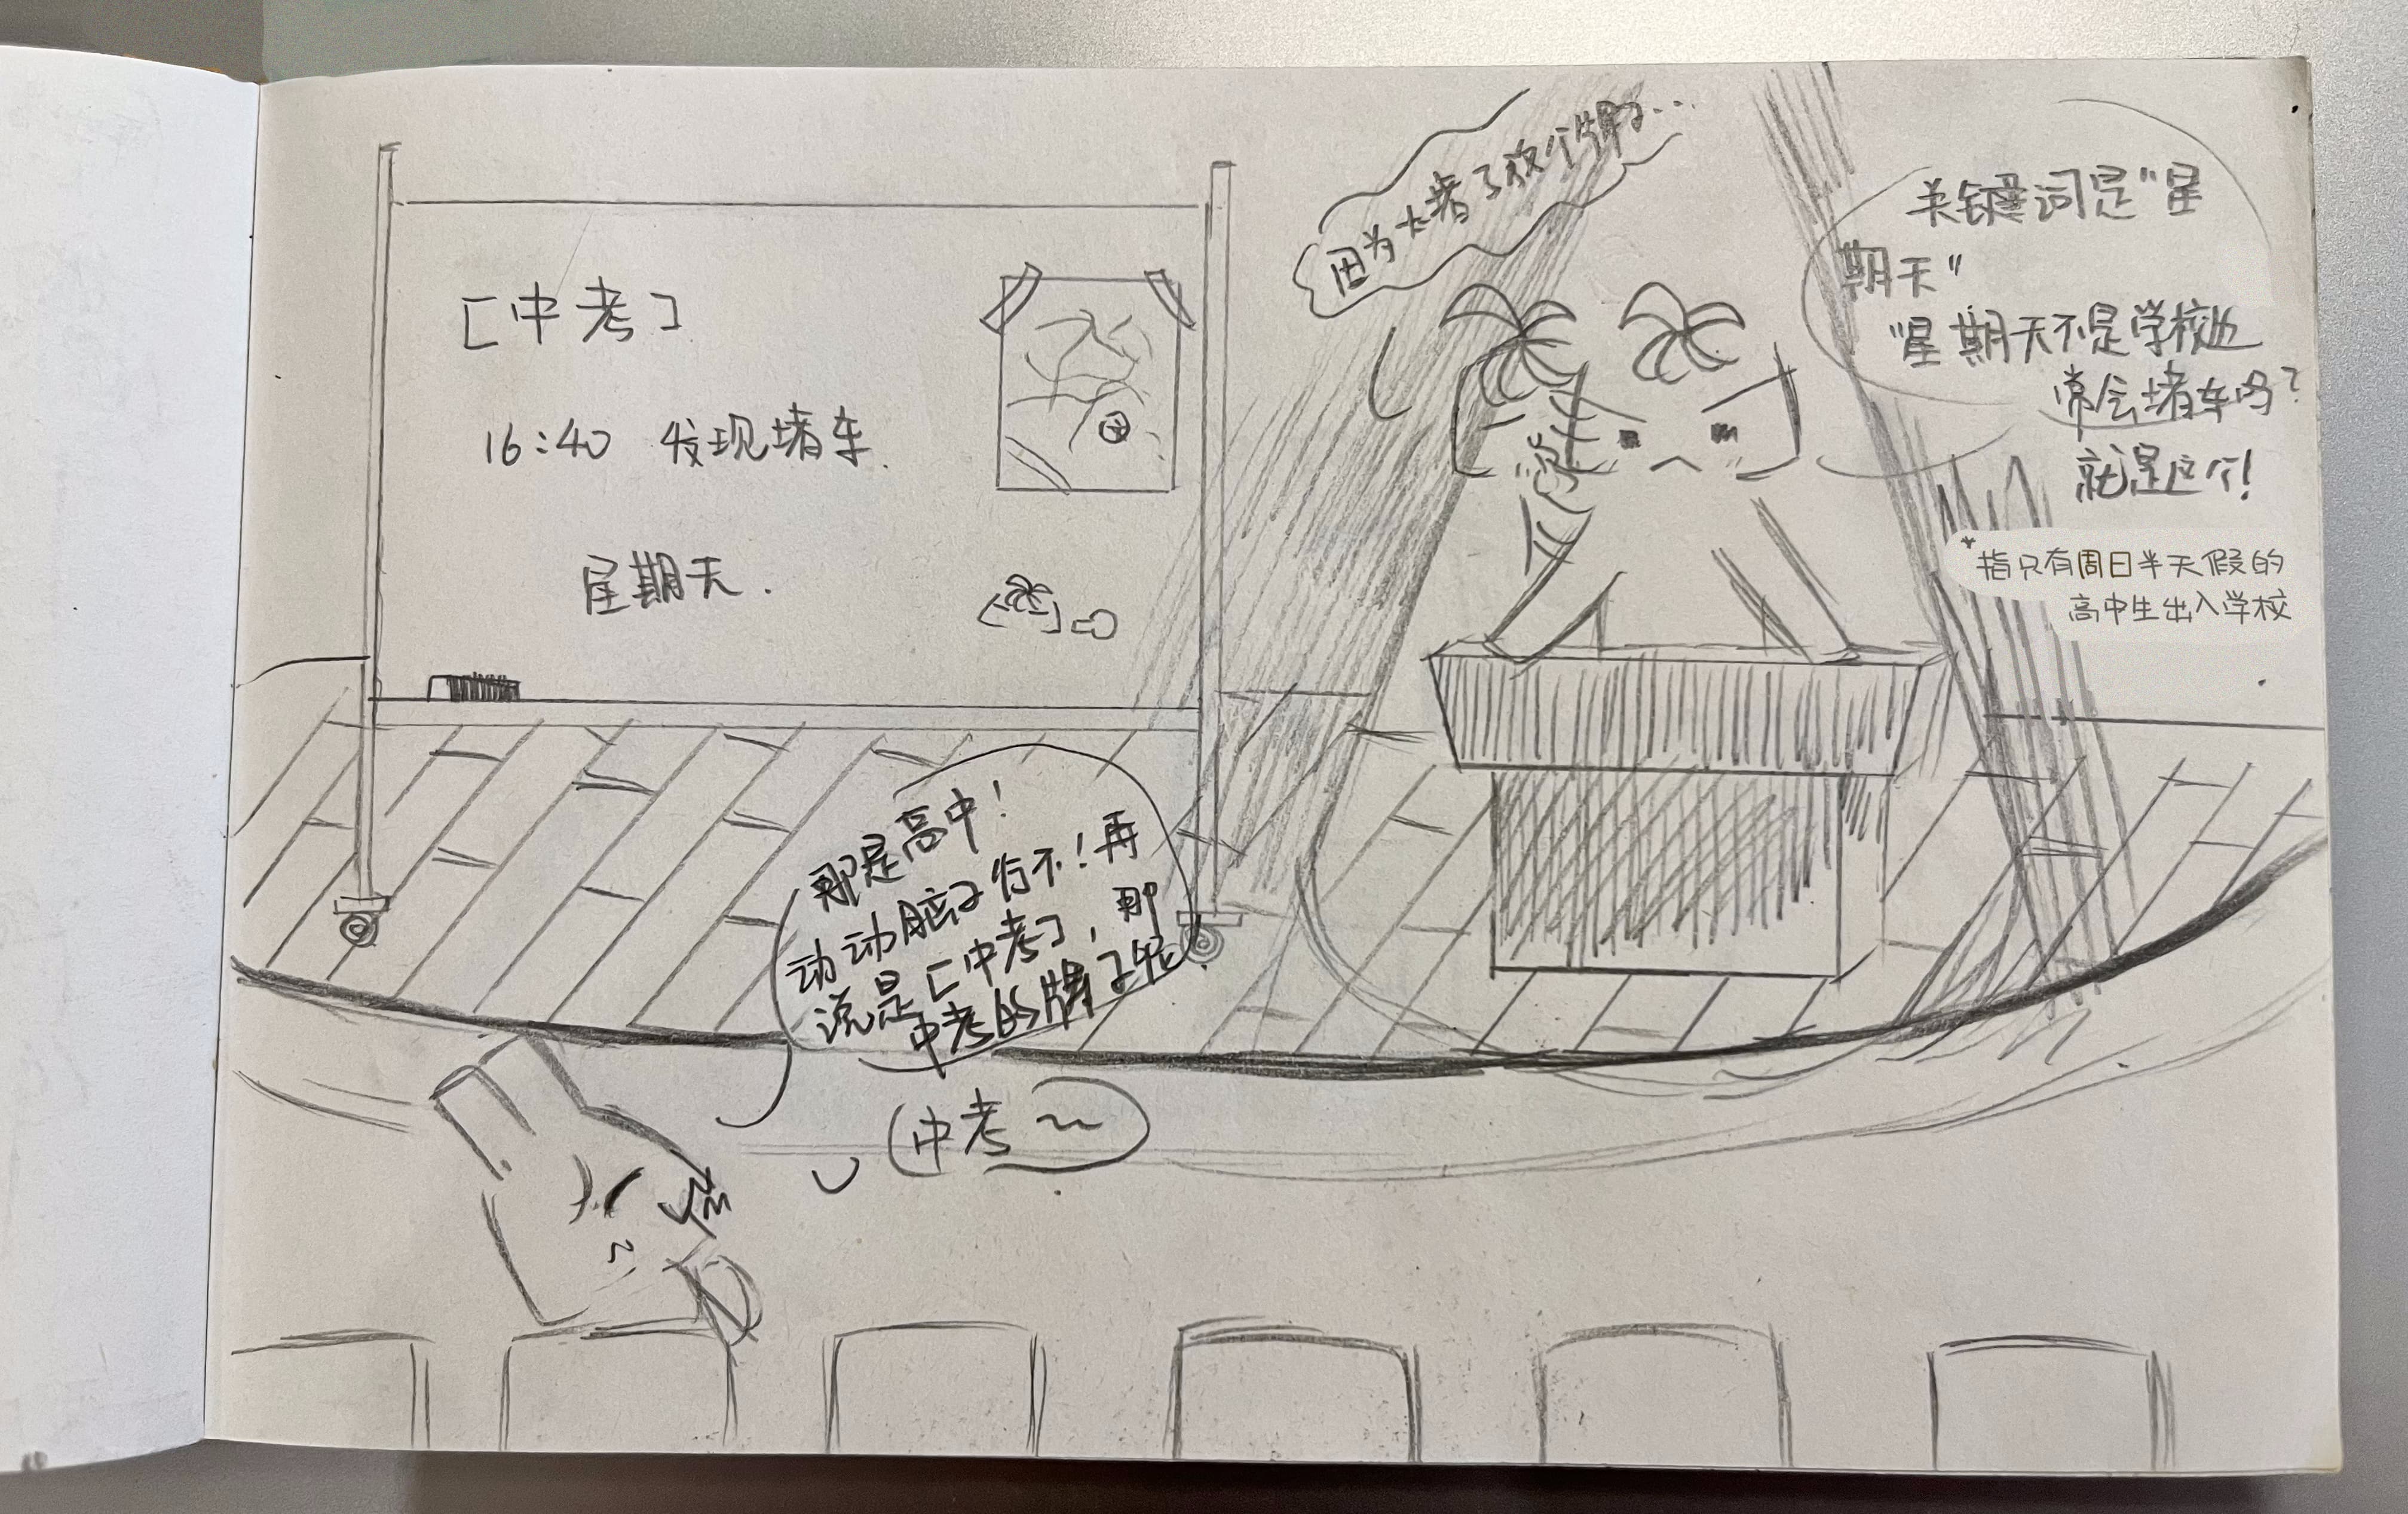 [中考]
16:40 发现堵车.
星期天.
因为太堵了放个牌子...
关键词是"星
期天"
"星期天不是学校也
常会堵车吗?
就是这个!
*指只有周日半天假的
高中生出入学校
那是高中!
动动脑子行不!再
说是[中考],那
中考的牌子呢
中考~